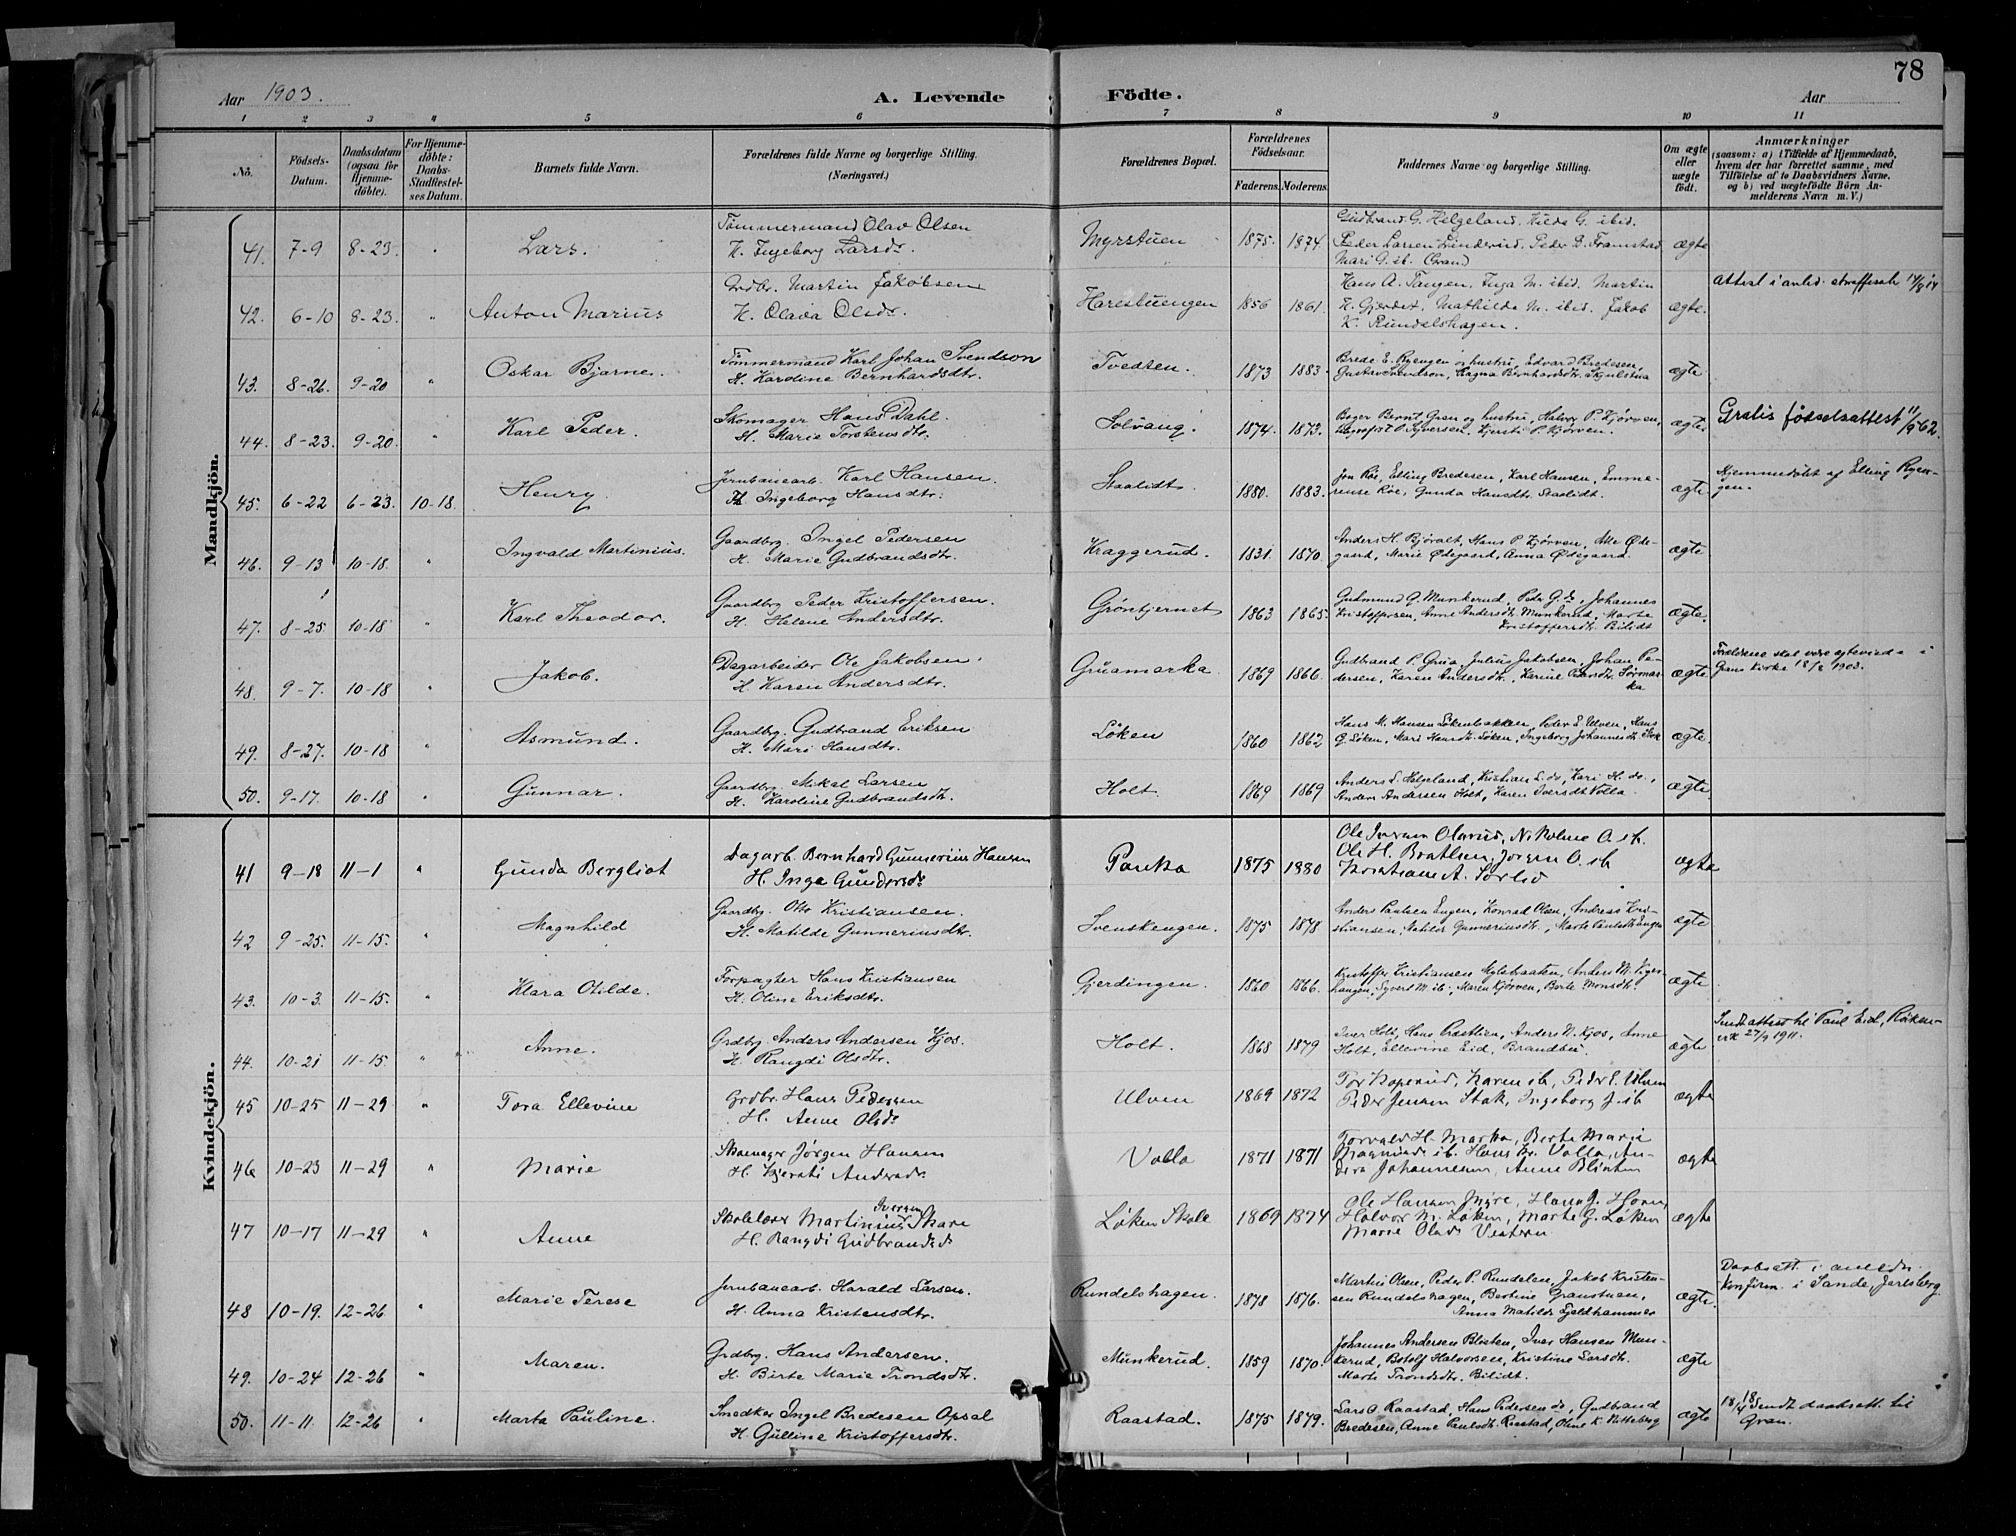 78
Aar 1903. A. Levende Födte. Aar
1 2 3 4 5 6 7 8 9 10 11
No. Födsels-Datum. Daabsdatum (ogsaa for Hjemme-döbte). For Hjemme-döbte: Daabs-Stadfæstel-ses Datum. Barnets fulde Navn. Forældrenes fulde Navne og borgerlige Stilling. (Næringsvei.) Forældrenes Bopæl. Forældrenes Födselsaar. Faderens. Moderens. Faddernes Navne og borgerlige Stilling. Om ægte eller uægte födt. Anmærkninger (saasom: a) i Tilfælde af Hjemmedaab, hvem der har forrettet samme, med Tilföielse af to Daabsvidners Navne, og b) ved uægtefödte Börn An-melderens Navn m. V.)
Mandkjön.
41. 7-9 8-23. " Lars. Tømmermand Olav Olsen
H. Ingeborg Larsdr. Myrstuen 1875. 1874. Gudbrand G. Helgeland, Hilda G. ibid.
Peder Larsen Linderud, Peder D. Framstad
Mari G. ib. (Gran) ægte
42. 6-10 8-23. " Anton Marius Grdbr. Martin Jakobsen
H. Olava Olsdr. Harestuengen 1856 1861. Hans A. Tangen, Inga M. ibid. Martin
H. Gjerdet, Mathilde M. ibid. Jakob
K. Rundelshagen. ægte. Attest i anled. straffesak 14/8 14
43. 8-26. 9-20 " Oskar Bjarne. Tømmermand Karl Johan Svendsen
H. Karoline Bernhardsdtr. Tvedten. 1873 1883. Brede E. Ryengen og hustru, Edvard Bredesen,
Gustav Svendsen, Ragna Bernhardsdtr. ægte
44. 8-23. 9-20. " Karl Peder. Skomager Hans Dahl.
H. Marie Torstensdtr. Solvang. 1874. 1873. Bager Bernt Gren og hustru, Halvor P. Kjørven,
O. Syversen, Kjersti P. Kjørven. ægte. Gratis fødselsattest 11/9 62.
45. 6-22 6-23. 10-18. Henry Jernbanearb. Karl Hansen.
H. Ingeborg Hansdtr. Staalidt. 1880. 1883. Jon Röe, Elling Bredesen, Karl Hansen, Emme-
rense Röe, Gunda Hansdtr. Staalidt. ægte Hjemmedøbt af Elling Ryen-
gen.
46. 9-13 10-18. " Ingvald Martinius. Gaardbr. Ingel Pedersen
H. Marie Gudbrandsdtr. Kraggerud. 1831. 1870. Anders H. Bjøralt, Hans P. Kjørven, Atle Øde-
gaard, Marie Ødegaard, Anna Ødegaard. ægte.
47. 8-25. 10-18 " Karl Theodor. Gaardbr. Peder Kristoffersen.
H. Helene Andersdtr. Grøntjernet 1863 1865. Gudmund G. Munkerud, Peder G. do, Johannes
Kristoffersen, Anne Andersdtr. Munkerud, Marte
Kristoffersdtr. Bilidt ægte.
48. 9-7. 10-18 " Jakob. Dagarbeider Ole Jakobsen.
H. Karen Andersdtr. Gruamarka 1869 1866. Gudbrand P. Grua, Julius Jakobsen, Johan Pe-
dersen, Karen Andersdtr., Karine Pedersdtr. Sørmar-
ka ægte Forældrene skal være egteviede i
Grans kirke 18/2 1903.
49. 8-27. 10-18 " Asmund. Gaardbr. Gudbrand Eriksen
H. Mari Hansdtr. Løken 1860 1862 Hans M. Hansen Løkenbakken, Peder E. Ulven, Hans
G. Løken, Mari Hansdtr. Løken, Ingeborg Johannesdtr. Stok ægte.
50. 9-17. 10-18 " Gunnar. Gaardbr. Mikal Larsen
H. Karoline Gudbrandsdtr. Holt. 1869 1869 Anders L. Helgeland, Kristian L. do, Kari H. do.,
Anders Andersen Holt, Karen Iversdt. Volla. ægte.
Kvindekjön.
41 9-18 11-1 " Gunda Bergliot Dagarb. Bernhard Gunnerius Hansen
H. Inga Gundersdr. Paaska 1875 1880 Ole Iversen Olerud, Nikoline O. ib.
Ole H. Bratlsen, Jørgen O. ib.
Kristiane A. Sørlid ægte
42 9-25. 11-15. " Magnhild Gaardbr. Otto Kristiansen.
H. Matilde Gunneriusdtr. Svenskengen. 1875 1878 Anders Paulsen Engen, Konrad Olsen, Andreas Kri-
stiansen, Matilde Gunneriusdtr., Marte Paulsdtr. Engen ægte
43. 10-3. 11-15. " Klara Otilde. Forpagter Hans Kristiansen
H. Oline Eriksdtr. Gjerdingen. 1860 1866. Kristoffer Kristiansen Mylsbraaten, Anders M. Viger-
haugen, Syvert M. ib., Maren Kjørven, Berte Monsdtr. ægte
44. 10-21 11-15. " Anne. Grdbr. Anders Andersen Kjos.
H. Rangdi Olsdtr. Holt. 1868 1879 Iver Holt, Hans Præstlien, Anders N. Kjos, Anne
Holt, Ellevine Eid, Brandbu. ægte Sendt attest til Paul Eid, Røiken-
vik 27/9 1911.
45 10-25 11-29 " Tora Ellevine Grdbr. Hans Pedersen
H. Anne Olsdr. Ulven 1869 1872 Tor Koperud, Karen ib, Peder E. Ulven
Peder Jensen Stok, Ingeborg J. ib ægte
46 10-23 11-29 " Marie Skomager Jørgen Hansen
H. Kjersti Andersdr. Volla 1871 1871 Torvald H. Marka, Berte Marie
Magnusdr. ib. Hans Kr. Volla, An-
ders Johannesen, Anne Blinten ægte
47 10-17 11-29 " Anne Skolelærer Martinius Iversen Skare
H. Rangdi Gudbrandsdr. Løken Skole 1869 1874 Ole Hansen Myre, Hans J. Horn,
Halvor M. Løken, Marte G. Løken
Marie Olsdr. Vestern ægte
48 10-19. 12-26 " Marie Terese Jernbanearb. Harald Larsen.
H. Anna Kristensdtr. Rundelshagen. 1878 1876. Martin Olsen, Peder P. Rundelen, Jakob Kristen-
sen Rundelshagen, Bertine Granstuen,
Anna Matilde Fjeldhammer ægte. Daabsatt. i anledn.
Konfirm. i Sande, Jarlsberg.
49. 10-24 12-26 " Maren. Grdbr. Hans Andersen.
H. Birte Marie Trondsdtr. Munkerud. 1859 1870. Johannes Andersen Blisten, Iver Hansen Mun-
kerud, Botolf Halvorsen, Kristine Larsdtr.
Marte Trondsdtr. Bilidt. ægte
50. 11-11. 12-26 " Marta Pauline. Snedker Ingel Bredesen Opsal
H. Gulline Kristoffersdtr. Raastad. 1875 1879. Lars O. Raastad, Hans Pedersen do, Gudbrand
Bredesen, Anne Paulsdtr. Raastad, Oline K. Vitteberg ægte 18/4 18 Sendt daabsatt. til
Gran.